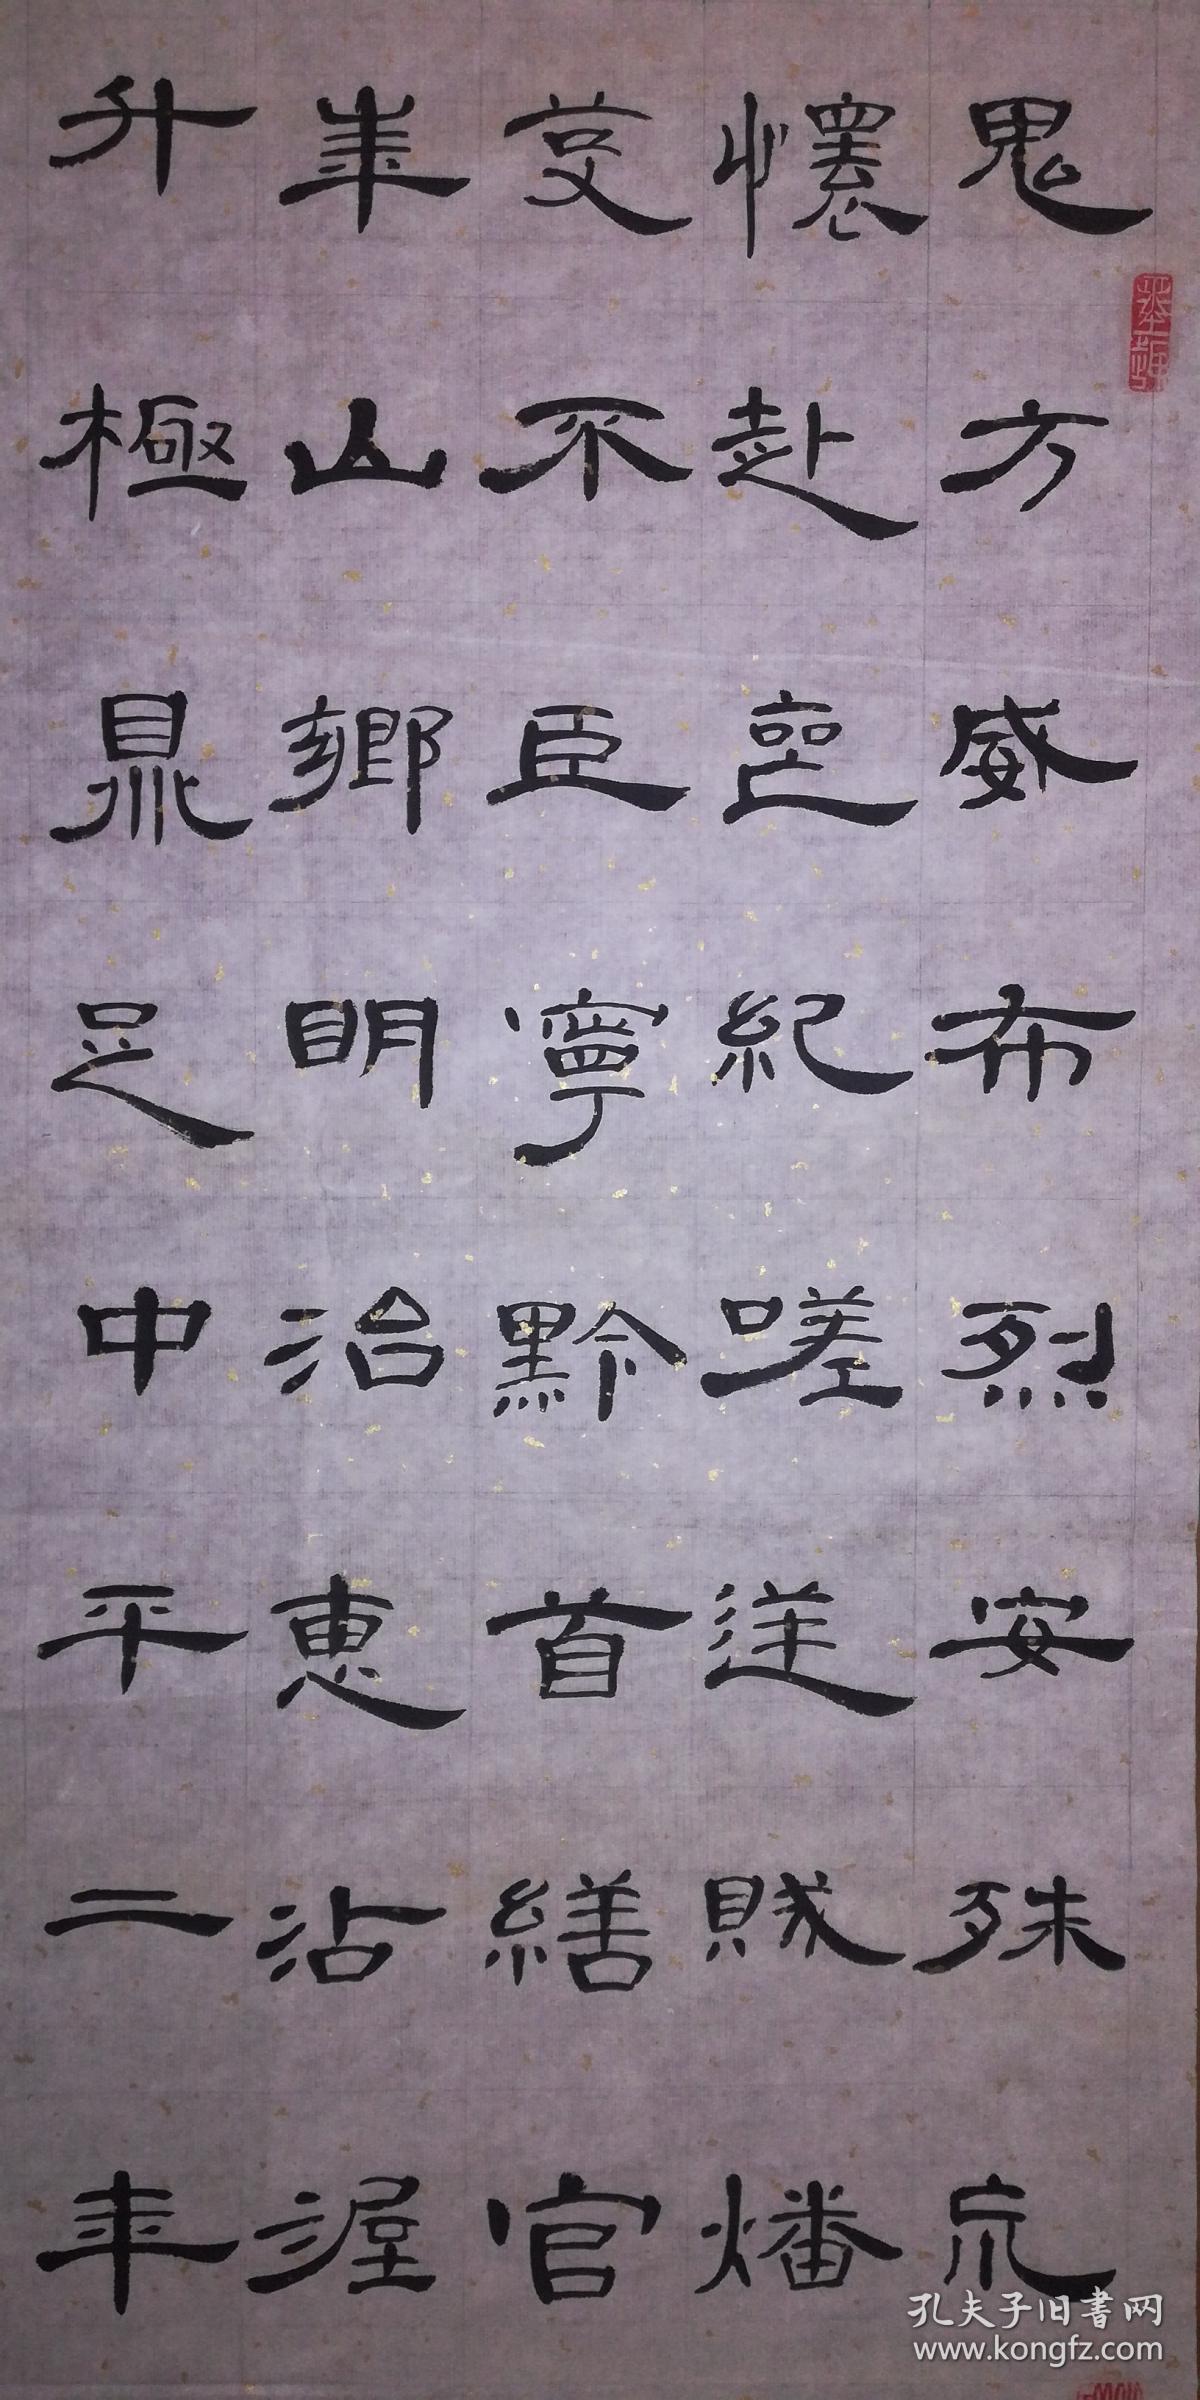 鬼方威布烈安殊巟
懷赴喪紀嗟逆賊燔
芟不臣寧黔首繕官
華山鄉明治惠沾渥
升極鼎足中平二年
孔夫子旧書网
www.kongfz.com